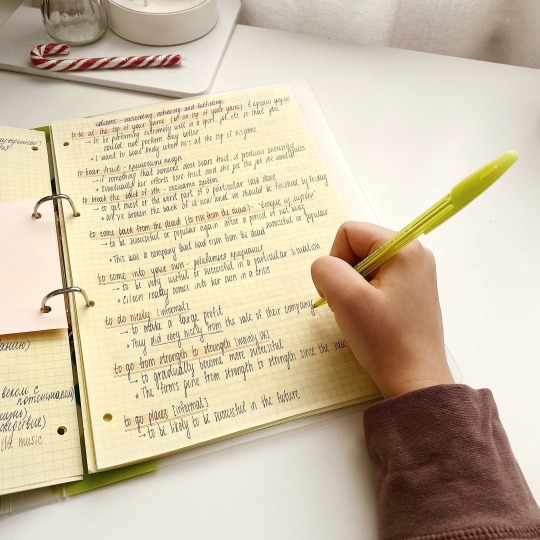 idioms - succeeding, achieving and failing.
to be at the top of your game (be on top of your game)
→ to be performing extremely well in a sport, job, etc so that you
could not perform any better
• I want to beat Andy when he's at the top of his game
to bear fruit -
→ if something that someone does bears fruit, it produces successful results
• Eventually her efforts bore fruit and she got the job she wanted
to break the back of sth -
→ to get most of the worst part of a particular task done
• We've broken the back of it now and we should be finished by Friday
to come back from the dead (to rise from the dead) -
→ to be successful or popular again after a period of not being successful or popular
• This was a company that had risen from the dead
to come into your own -
→ to be very useful or successful in a particular situation
• Eileen really comes into her own in a crisis
to do nicely [informal]
→ to make a large profit
• They did very nicely from the sale of their company
to go from strength to strength [mainly UK]
→ to gradually become more successful
• The firm's gone from strength to strength since the new
to go places [informal]
→ to be likely to be successful in the future
the music